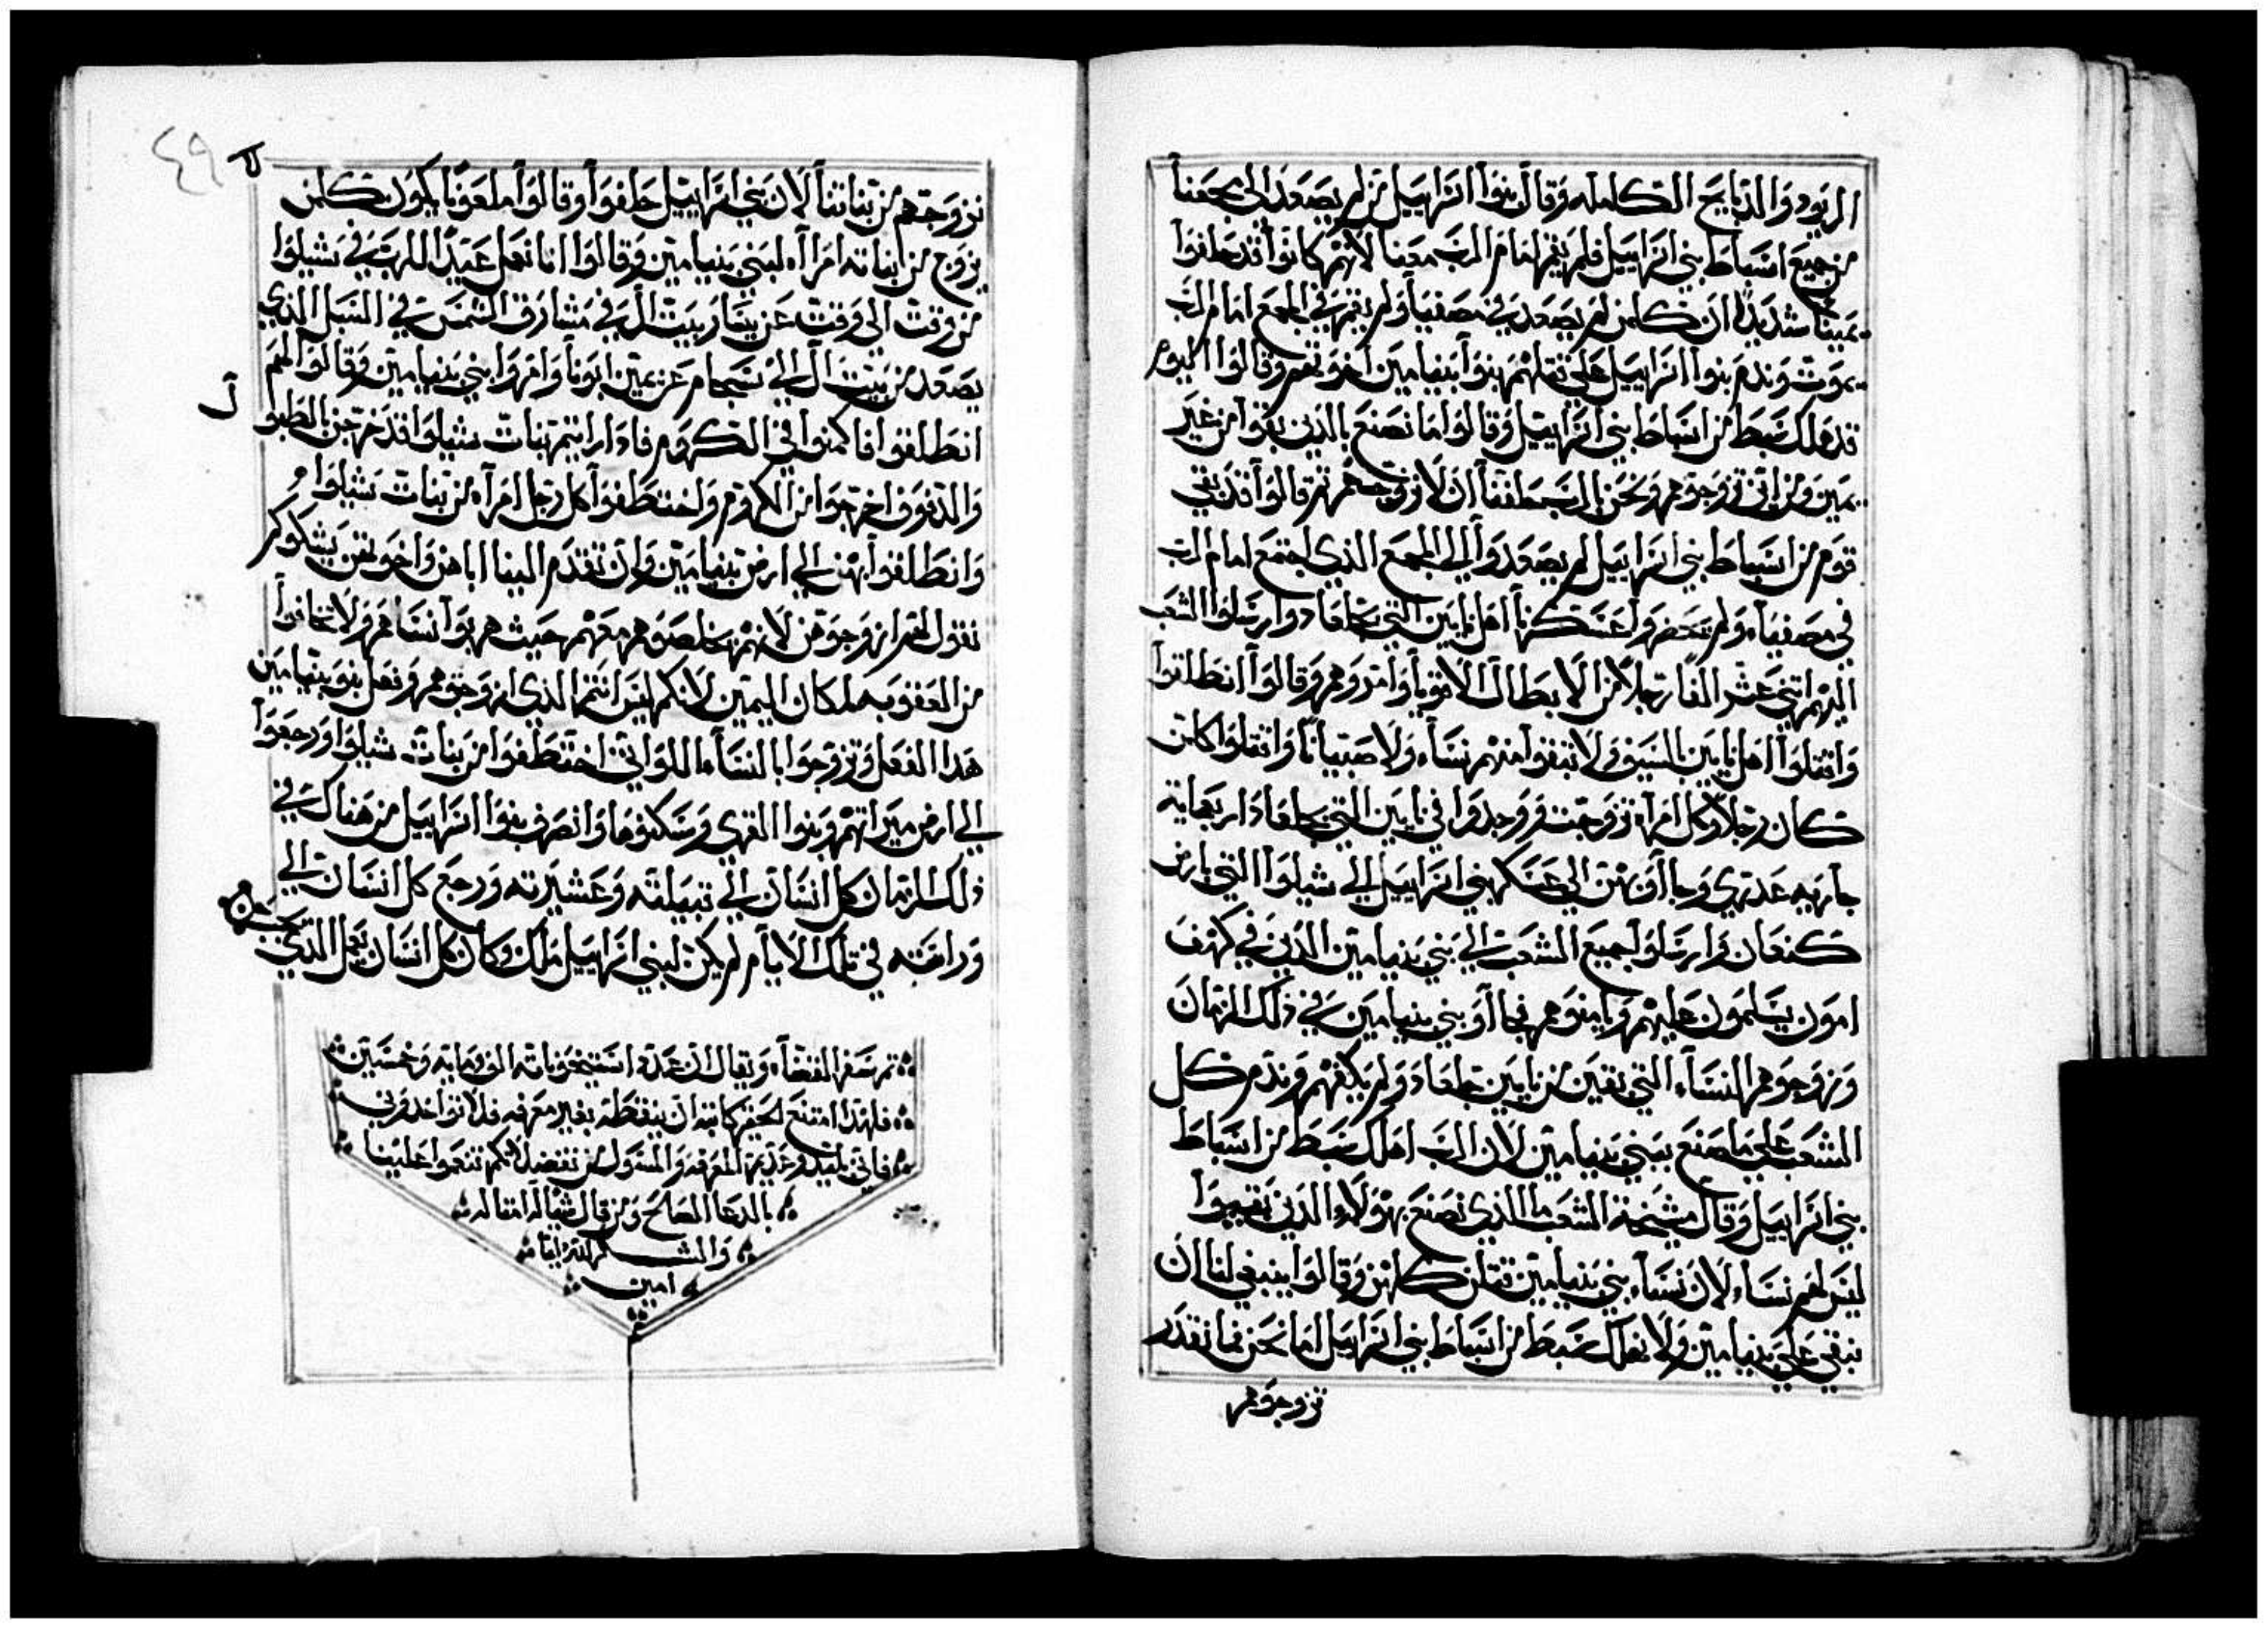 الربود والذبايح الكامله وقال بنوا اسراييل من لم يصعد الى مجمعنا
من جميع اسباط بني اسراييل فلم يقم امام الرب معنا لانهم كانوا قد حلفوا
يمينًا شديدًا ان كلمن لم يصعد في مصفيا ولم يقم في المجمع امام الرب
يموت وندم بنوا اسراييل على قتلهم بنوا بنيامين اخوتهم وقالوا اليوم
قد هلك سبط من اسباط بني اسراييل وقالوا ما نصنع بالذين بقوا من غير
يمين ومن اين نزوجوهم ونحن بالرب حلفنا ان لا نزوجهم ثم قالوا قد بقي
قوم من اسباط بني اسراييل لم يصعدوا الي المجمع الذي اجتمع امام الرب
في مصفيا ولم يحضروا عسكرنا اهل يابين التي بجلعاد وارسلوا الشعب
اليهم اثني عشر الفًا رجلاً من الابطال الاقويا وامروهم وقالوا انطلقوا
واقتلوا اهل يابين بالسيف ولا تبقوا منهم نساء ولا صبيانًا واقتلوا كلمن
كان رجلاً وكل امراه تزوجت ووجدوا في يابين التي بجلعاد اربعمايه
جاريه عدري وجاآوا بهن الي عسكر بني اسراييل الي شيلوا التي بارض
كنعان وارسلوا جميع الشعب الي بني بنيامين الذين في كهف
امون يسلمون عليهم ويامنوهم فجاآوا بني بنيامين في ذلك الزمان
وزوجوهم النساء التي بقين من يابين جلعاد ولم يكفهم وندم كل
الشعب علي ما صنع ببني بنيامين لان الرب اهلك سبط من اسباط
بني اسراييل وقال مشيخة الشعب ما الذي نصنع بهولاء الذين بقيوا
ليس لهم نساء لان نساء بني بنيامين قتلن كلهن وقالوا ينبغي لنا ان
نبقي علي بنيامين ولا نهلك سبط من اسباط بني اسراييل اما نحن فما نقدر
نزوجوهم
٤٩
نزوجهم من بناتنا لان بني اسراييل حلفوا وقالوا ملعونًا يكون كلمن
يزوج من ابناته امرآه لبني بنيامين وقالوا انا نعمل عيدًا للرب في شيلوا
من وقت الى وقت عن يسار بيت ال في مشارق الشمس في السبل الذي
يصعد من بيت ال الي شجام عن يمين ابونا وامروا بني بنيامين وقالوا لهم
انطلقوا فاكمنوا في الكروم فادا رايتم بنات شيلوا قد خرجن بالطبول
والدفوف اخرجوا من الكروم واختطفوا كل رجل امرآه من بنات شيلوا
وانطلقوا بهن الي ارض بنيامين وان تقدم الينا اباهن واخوتهن يشكوكم
نقول لهم ازوجوهن لانهم خلصوهم معهم حيث هربوا نساهم ولا تخافوا
من العقوبه لمكان اليمين لانكم ليس انتم الذي ازوجتوهم وفعل بنو بنيامين
هذا الفعل وتزوجوا بالنساء اللواتي اختطفوا من بنات شيلوا ورجعوا
الي ارض ميراتهم وبنوا القري وسكنوها وانصرف بنوا اسراييل من هناك في
ذلك الزمان كل انسان الي قبيلته وعشيرته ورجع كل انسان الي
وراثته في تلك الايام لم يكن لبني اسراييل ملك وكان كل انسان يعمل الذي
تم سفر القضاء ويقال ان عدة استيخوناته الف ومايه وخمسين
فلهذا امتنع الحقير كاتبه ان ينقطه بغير معرفه فلا تواخذوني
فاني بليد وعديم المعرفه والمسول من تفضلاتكم تنعموا علينا
بالدعا الصالح ومن قال شيًا له امثاله
والشكر لله دايمًا
امين